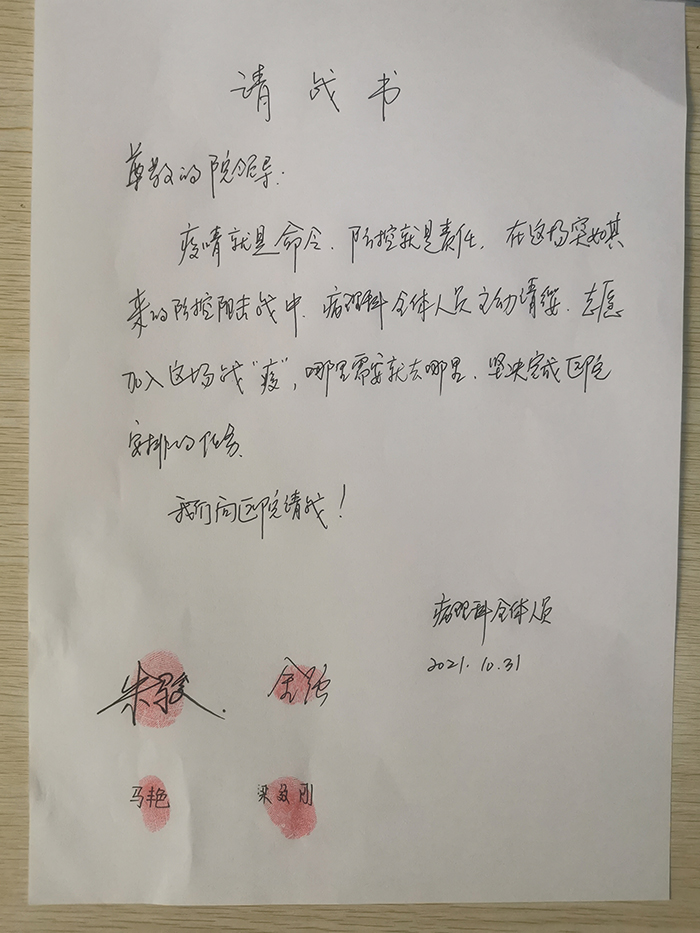 请战书
尊敬的院领导:
疫情就是命令、防控就是责任,在这场突如其
来的防控阻击战中,病理科全体人员主动请缨、志愿
加入这场战“疫”,哪里需要就去哪里、坚决完成医院
安排的任务。
我们向医院请战!
病理科全体人员
2021.10.31
马艳 梁 刚